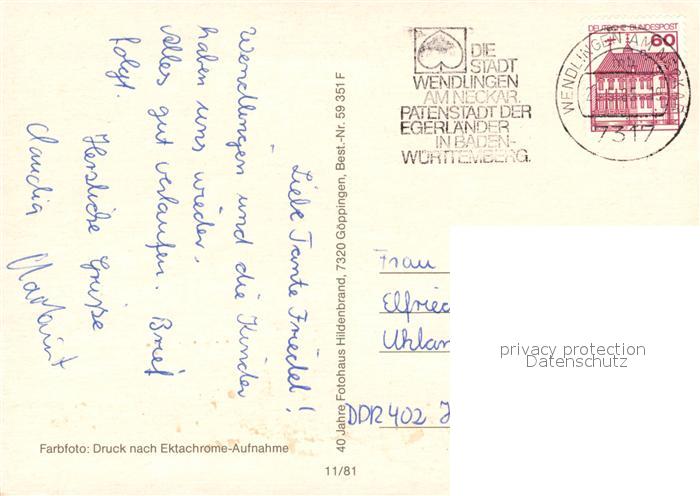 Liebe Tante Friedel!
Wendlingen und die Kinder
haben uns wieder.
Alles gut verlaufen. Brief
folgt.
Herzliche Grüße
Claudia
Farbfoto: Druck nach Ektachrome-Aufnahme
11/81
40 Jahre Fotohaus Hildenbrand, 7320 Göppingen, Best.-Nr. 59 351 F
DIE
STADT
WENDLINGEN
AM NECKAR.
PATENSTADT DER
EGERLÄNDER
IN BADEN-
WÜRTTEMBERG.
DEUTSCHE BUNDESPOST
60
WENDLINGEN AM NECKAR
7317
Frau
Elfried
Uhlan
DDR 402
privacy protection
Datenschutz